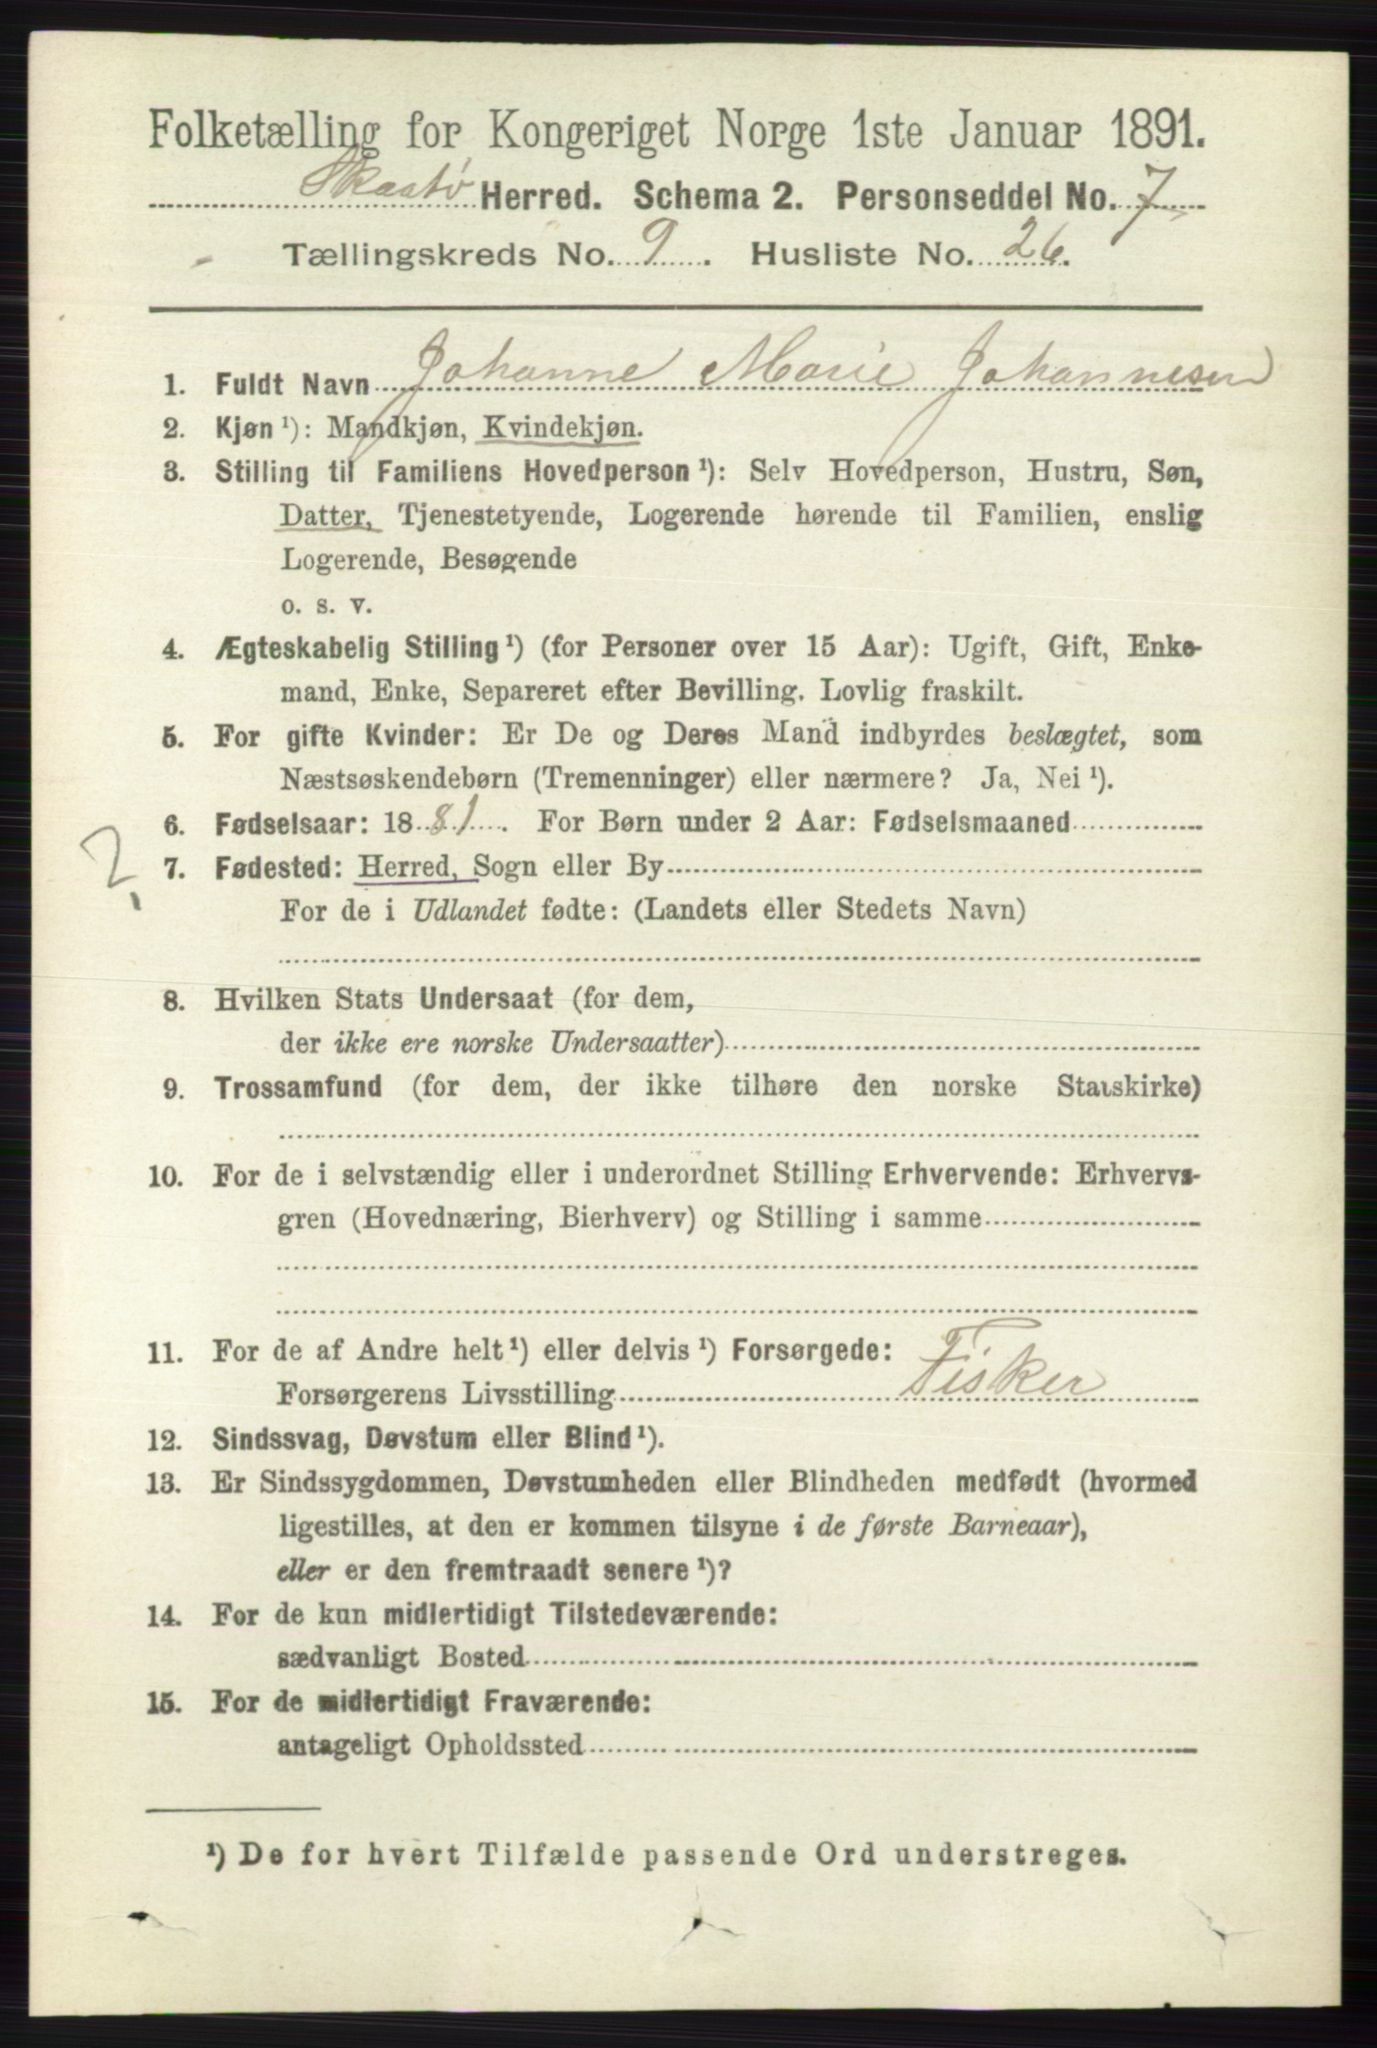 Folketælling for Kongeriget Norge 1ste Januar 1891.
Skaatø Herred. Schema 2. Personseddel No. 7
Tællingskreds No. 9. Husliste No. 26.
1. Fuldt Navn Johanne Marie Johannesen
2. Kjøn ¹): Mandkjøn, Kvindekjøn.
3. Stilling til Familiens Hovedperson ¹): Selv Hovedperson, Hustru, Søn,
Datter, Tjenestetyende, Logerende hørende til Familien, enslig
Logerende, Besøgende
o. s. v.
4. Ægteskabelig Stilling ¹) (for Personer over 15 Aar): Ugift, Gift, Enke-
mand, Enke, Separeret efter Bevilling. Lovlig fraskilt.
5. For gifte Kvinder: Er De og Deres Mand indbyrdes beslægtet, som
Næstsøskendebørn (Tremenninger) eller nærmere? Ja, Nei ¹).
6. Fødselsaar: 1881. For Børn under 2 Aar: Fødselsmaaned
? 7. Fødested: Herred, Sogn eller By
For de i Udlandet fødte: (Landets eller Stedets Navn)
8. Hvilken Stats Undersaat (for dem,
der ikke ere norske Undersaatter)
9. Trossamfund (for dem, der ikke tilhøre den norske Statskirke)
10. For de i selvstændig eller i underordnet Stilling Erhvervende: Erhvervs-
gren (Hovednæring, Bierhverv) og Stilling i samme
11. For de af Andre helt ¹) eller delvis ¹) Forsørgede:
Forsørgerens Livsstilling Fisker
12. Sindssvag, Døvstum eller Blind ¹).
13. Er Sindssygdommen, Døvstumheden eller Blindheden medfødt (hvormed
ligestilles, at den er kommen tilsyne i de første Barneaar),
eller er den fremtraadt senere ¹)?
14. For de kun midlertidigt Tilstedeværende:
sædvanligt Bosted
15. For de midlertidigt Fraværende:
antageligt Opholdssted
¹) De for hvert Tilfælde passende Ord understreges.